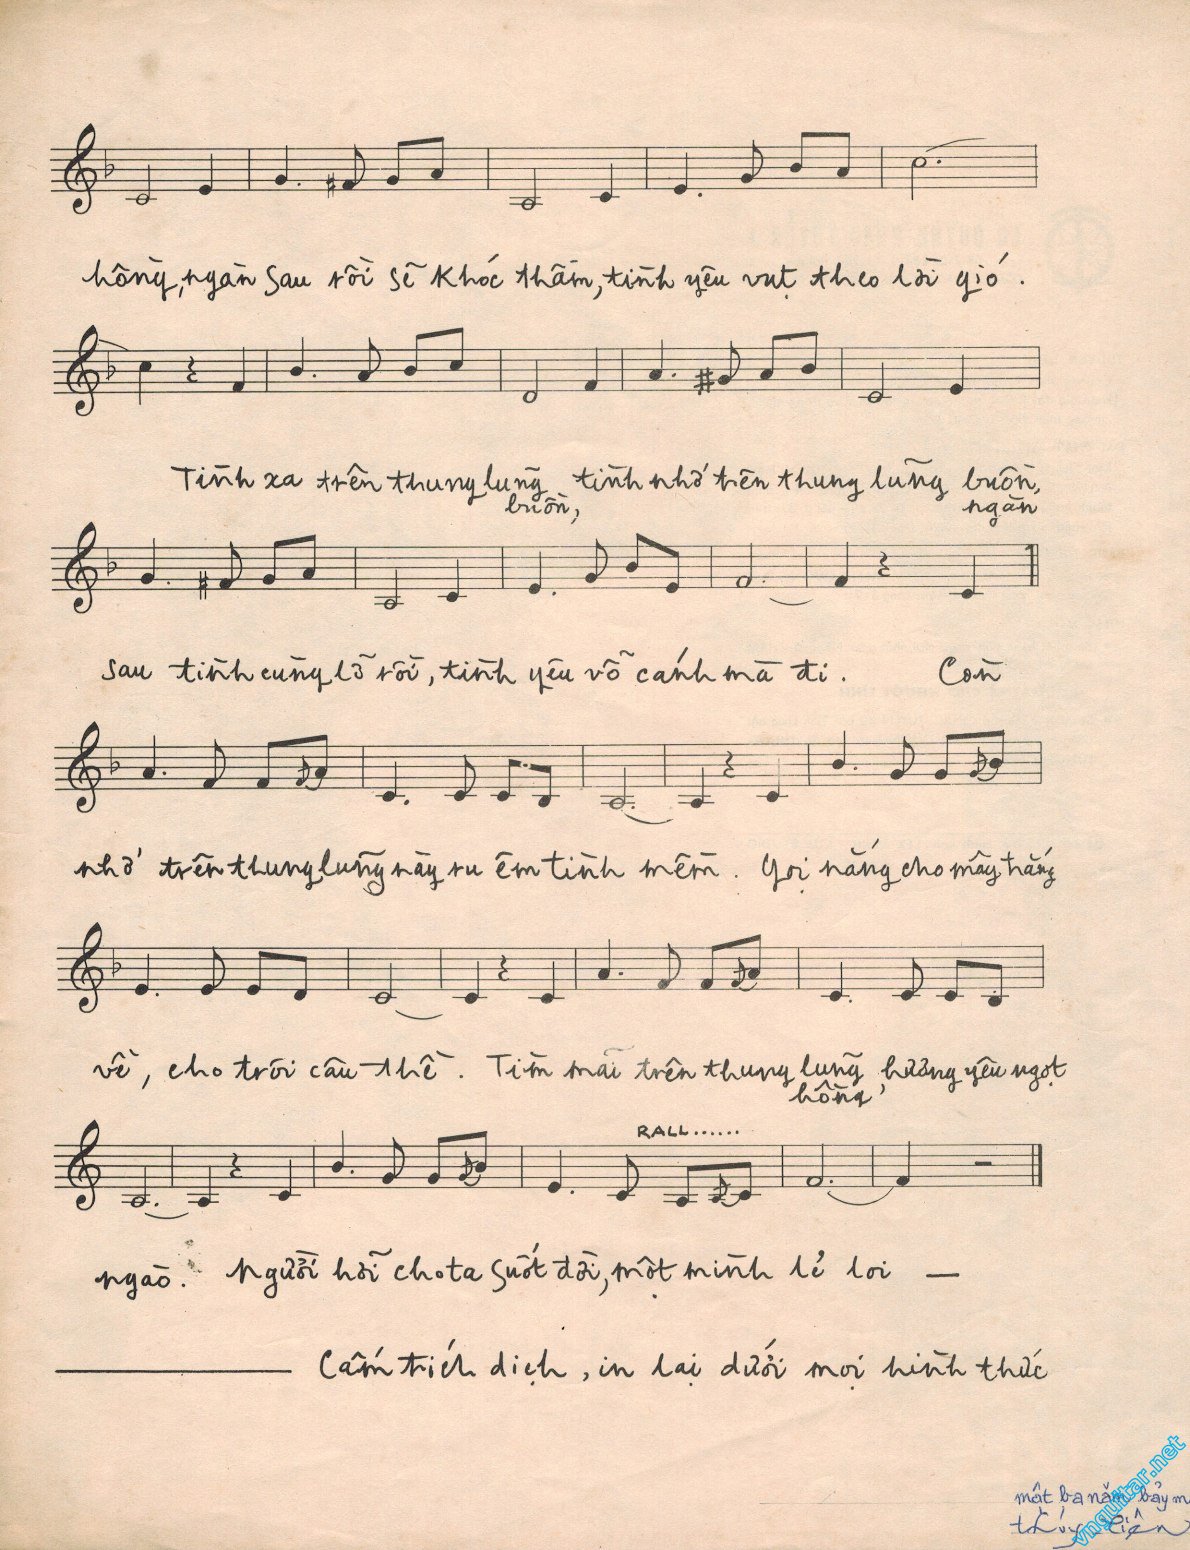 hồng, ngàn sau rồi sẽ khóc thầm, tình yêu vụt theo lời gió.
Tình xa trên thung lũng buồn, tình nhớ trên thung lũng buồn, ngàn
sau tình cũng lỡ rồi, tình yêu vỗ cánh mà đi. Còn
nhớ trên thung lũng này ru êm tình mềm. Gọi nắng cho mây trắng
về, cho trời câu thề. Tìm mãi trên thung lũng hồng, hương yêu ngọt
RALL......
ngào. Người hỡi cho ta suốt đời, một mình lẻ loi —
Cấm trích dịch, in lại dưới mọi hình thức
một ba năm bảy
thúy liên
vnguitar.net